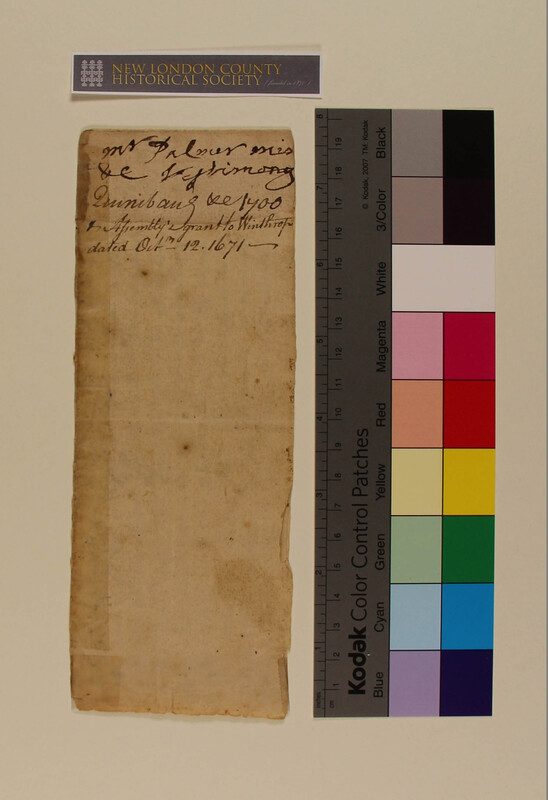 NEW LONDON COUNTY
HISTORICAL SOCIETY
mr Palmer
&c
Quinibaug &c 1700
Assembly's grant to Winthrop
dated Octr 12 - 1671
© Kodak, 2007 TM: Kodak
Kodak Color Control Patches
Blue Cyan Green Yellow Red Magenta White 3/Color Black
inches 1 2 3 4 5 6 7 8
cm 1 2 3 4 5 6 7 8 9 10 11 12 13 14 15 16 17 18 19